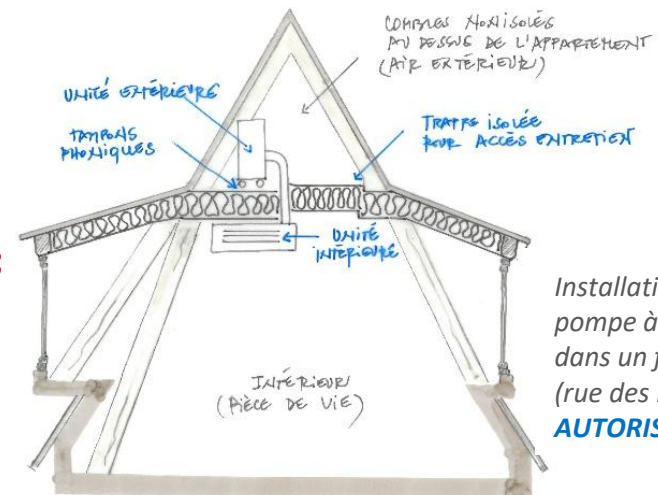 COMBLES NON ISOLÉS
AU DESSUS DE L'APPARTEMENT
(AIR EXTÉRIEUR)
UNITÉ EXTÉRIEURE
TAMPONS
PHONIQUES
TRAPPE ISOLÉE
POUR ACCÈS ENTRETIEN
UNITÉ
INTÉRIEURE
INTÉRIEUR
(PIÈCE DE VIE)
Installati
pompe à
dans un f
(rue des
AUTORIS